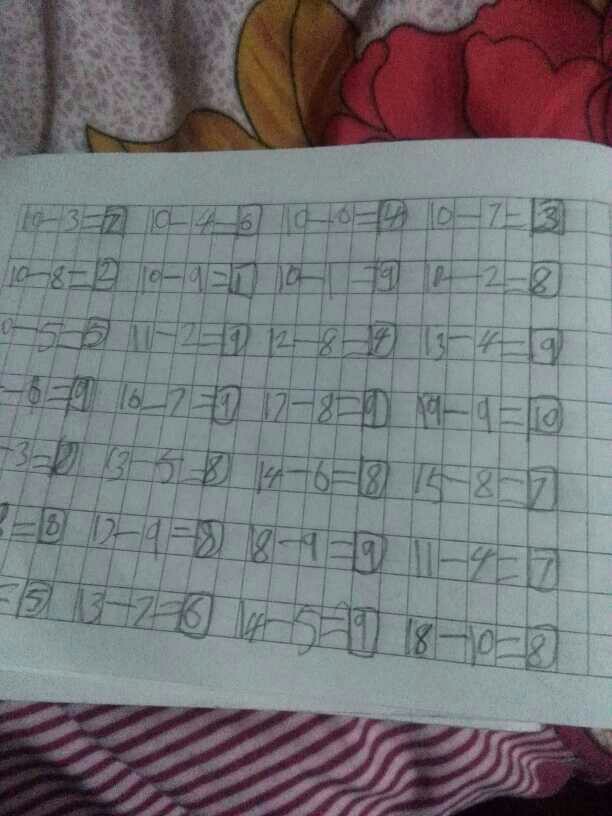 10-3=7 10-4=6 10-6=4 10-7=3
10-8=2 10-9=1 10-1=9 10-2=8
0-5=5 11-2=9 12-8=4 13-4=9
-6=9 16-7=9 17-8=9 19-9=10
-3= 13-5=8 14-6=8 15-8=7
8= 17-9=8 18-9=9 11-4=7
=5 13-7=6 14-5=9 18-10=8